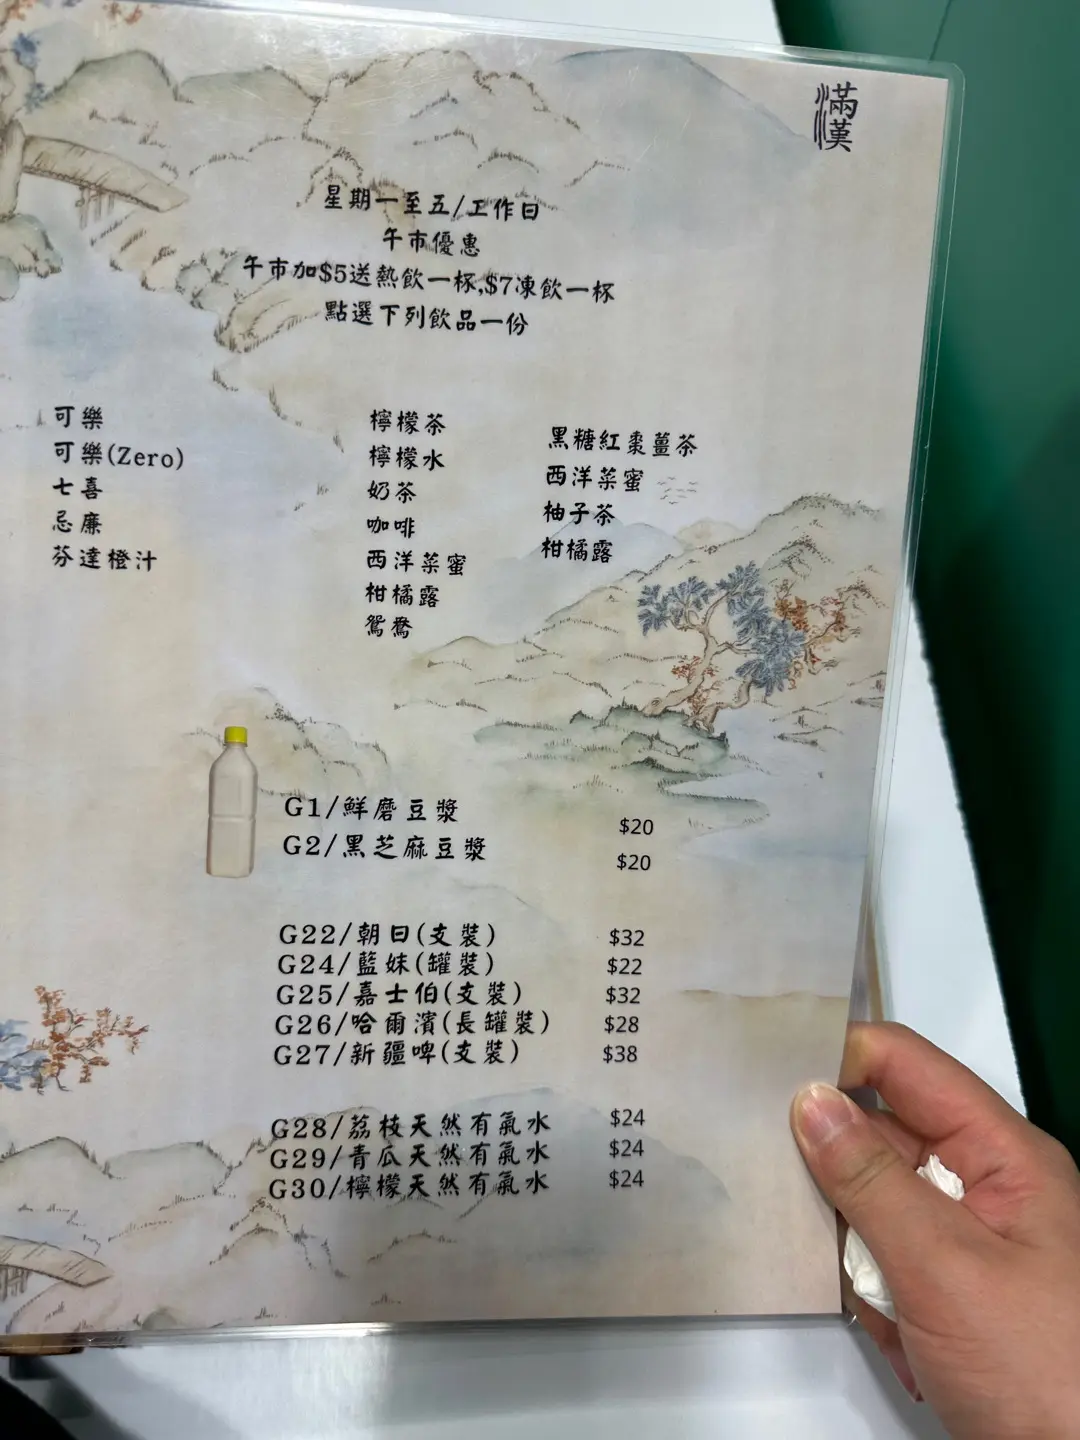 滿漢
星期一至五/工作日
午市優惠
午市加$5送熱飲一杯,$7凍飲一杯
點選下列飲品一份
可樂
可樂(Zero)
七喜
忌廉
芬達橙汁
檸檬茶
檸檬水
奶茶
咖啡
西洋菜蜜
柑橘露
鴛鴦
黑糖紅棗薑茶
西洋菜蜜
柚子茶
柑橘露
G1/鮮磨豆漿 $20
G2/黑芝麻豆漿 $20
G22/朝日(支裝) $32
G24/藍妹(罐裝) $22
G25/嘉士伯(支裝) $32
G26/哈爾濱(長罐裝) $28
G27/新疆啤(支裝) $38
G28/荔枝天然有氣水 $24
G29/青瓜天然有氣水 $24
G30/檸檬天然有氣水 $24